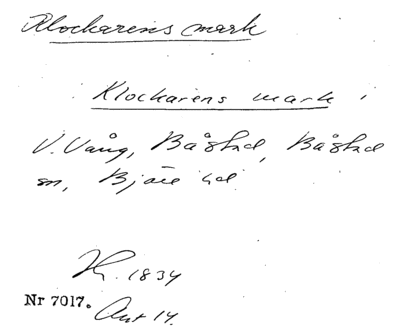 Klockarens mark
Klockarens mark i
V. Vång, Båstad, Båstad
sn, Bjäre hd
K. 1834
Nr 7017.
Akt 14.